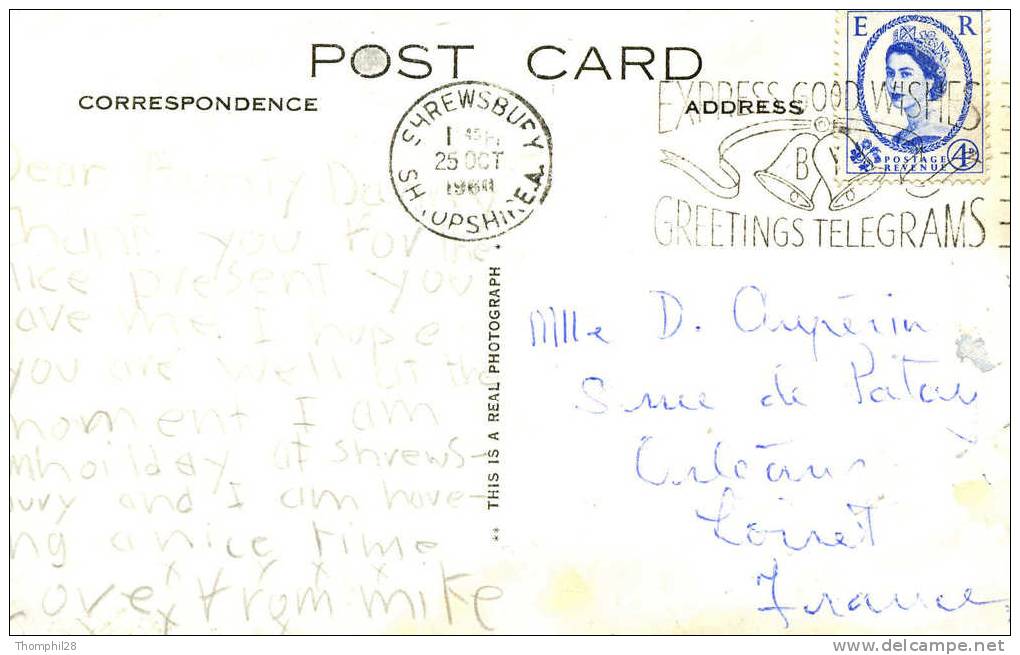 POST CARD
CORRESPONDENCE
ADDRESS
E R
POSTAGE
REVENUE
4D
SHREWSBURY
1 45 PM
25 OCT
1960
SHROPSHIRE.A.
EXPRESS GOOD WISHES
BY
GREETINGS TELEGRAMS
Dear
thank you for the
like present you
ave me. I hope
you are well at the
moment I am
onhoilday at shrews-
bury and I am have-
ng a nice time
Love from mike
x x x x
x x x
** THIS IS A REAL PHOTOGRAPH *
Mlle D. Aupérin
5 rue de Patay
Orléans
Loiret
France
Thomphil28
delcampe.net